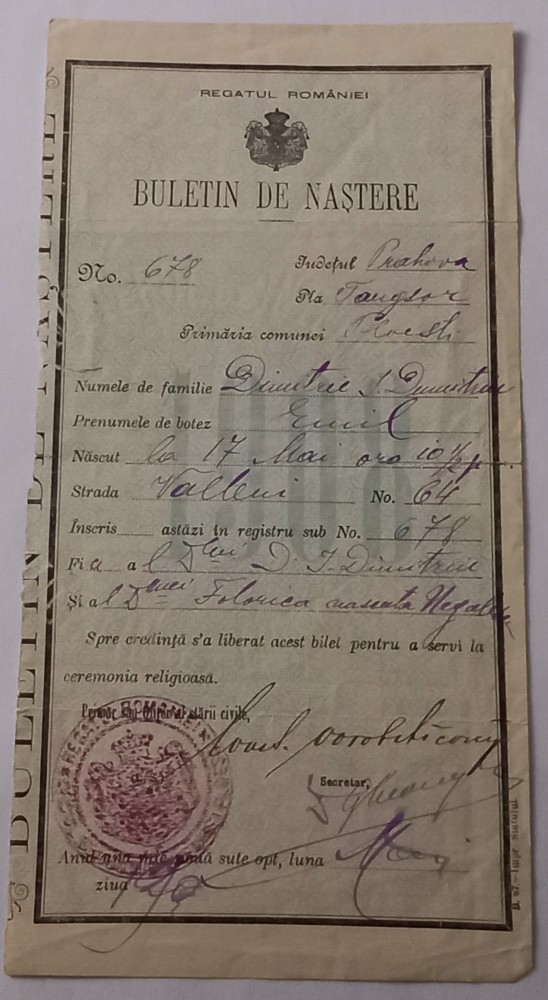 REGATUL ROMÂNIEI
BULETIN DE NAȘTERE
No. 678
Județul Prahova
Pla Târgșor
Primăria comunei Ploesti
Numele de familie Dimitrie I. Dumitriu
Prenumele de botez Emil
Născut la 17 Mai ora 10 1/2 p.
Strada Valleni No. 64
Înscris astăzi în registru sub No. 678
Fi a al Dlui D. I. Dimitriu
Și al Dnei Folorica nascuta
Spre credință s'a liberat acest bilet pentru a servi la
ceremonia religioasă.
al stării civile,
Secretar,
Anul una mie nouă sute opt, luna Mai
ziua
BULETIN DE NAȘTERE
Impr. Statului